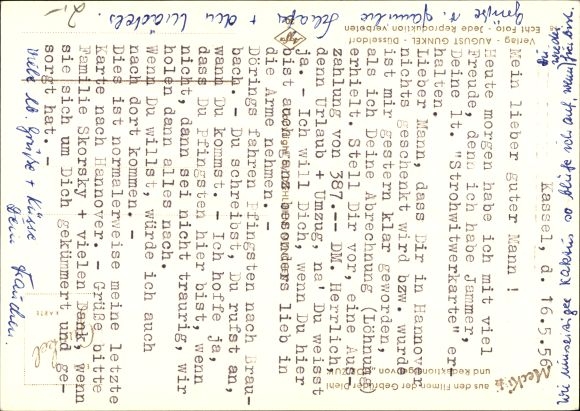 Kassel, d. 16.5.56
Mein lieber guter Mann !
Heute morgen habe ich mit viel
Freude, denn ich habe Jammer,
Deine lt. "Strohwitwerkarte" er-
halten.
Lieber Mann, dass Dir in Hannover
nichts geschenkt wird bzw. wurde
ist mir gestern klar geworden,
als ich Deine Abrechnung (Löhnung)
erhielt. Stell Dir vor, eine Aus-
zahlung von 387.-- DM. Herrlich,
denn Urlaub + Umzug, na' Du weisst
ja. - Ich will Dich, wenn Du hier
bist auch ganz besonders lieb in
die Arme nehmen. -
Dörings fahren Pfingsten nach Brau-
bach. - Du schreibst, Du rufst an,
wann Du kommst. - Ich hoffe ja,
dass Du Pfingsten hier bist, wenn
nicht, dann sei nicht traurig, wir
holen dann alles nach.
Wenn Du willst, würde ich auch
nach dort kommen. -
Dies ist normalerweise meine letzte
Karte nach Hannover. - Grüße bitte
Familie Skorsky + vielen Dank, wenn
sie sich um Dich gekümmert und ge-
sorgt hat. -
Viele lb. Grüße + Küsse
Dein
Grüße v. Familie
+ den
2,-
Mecki
Verlag - AUGUST GUNKEL - Düsseldorf
Echt Foto - Jede Reproduktion verboten
aus den Filmen der Gebrüder Diehl